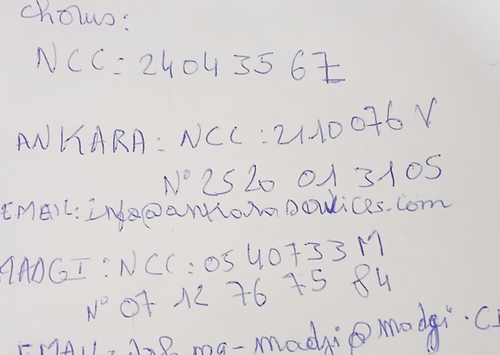 Chorus:
NCC: 2404356 Z
ANKARA: NCC: 2110076 V
N° 25 20 01 31 05
EMAIL: info@ankaraservices.com
MADGI: NCC: 0540733 M
N° 07 12 76 75 84
EMAIL: madgi@madgi.ci